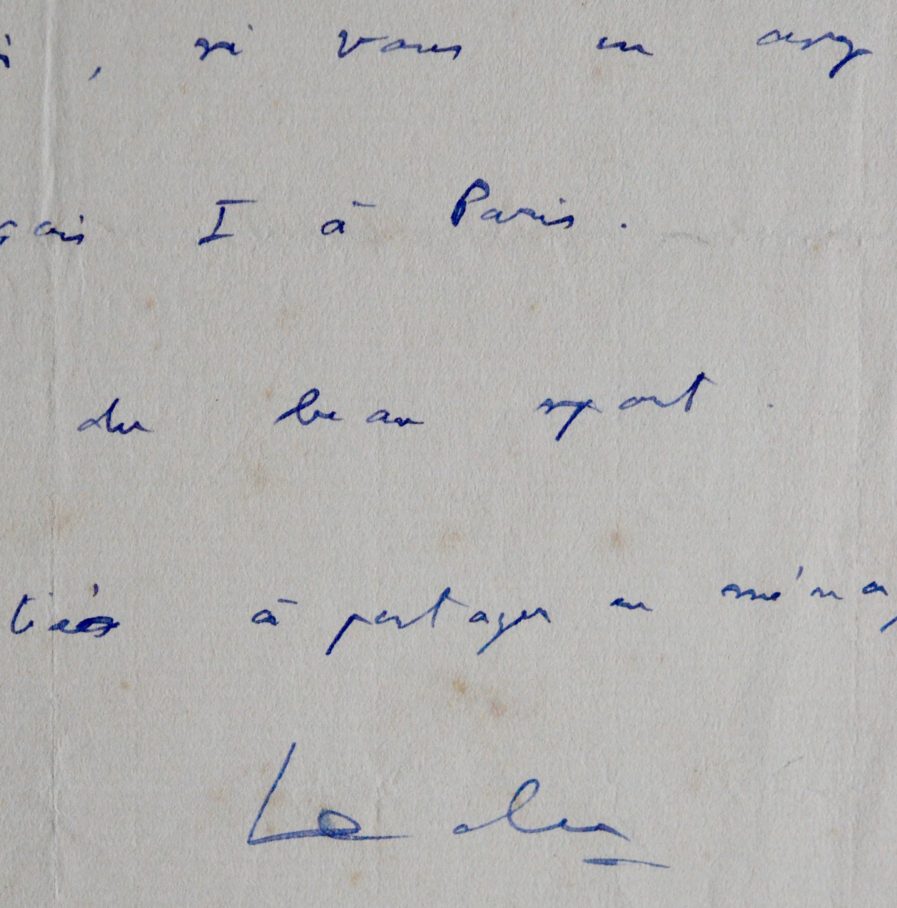 i, si vous en avez
çais I à Paris.
du beau sport.
tiés à partager en ména